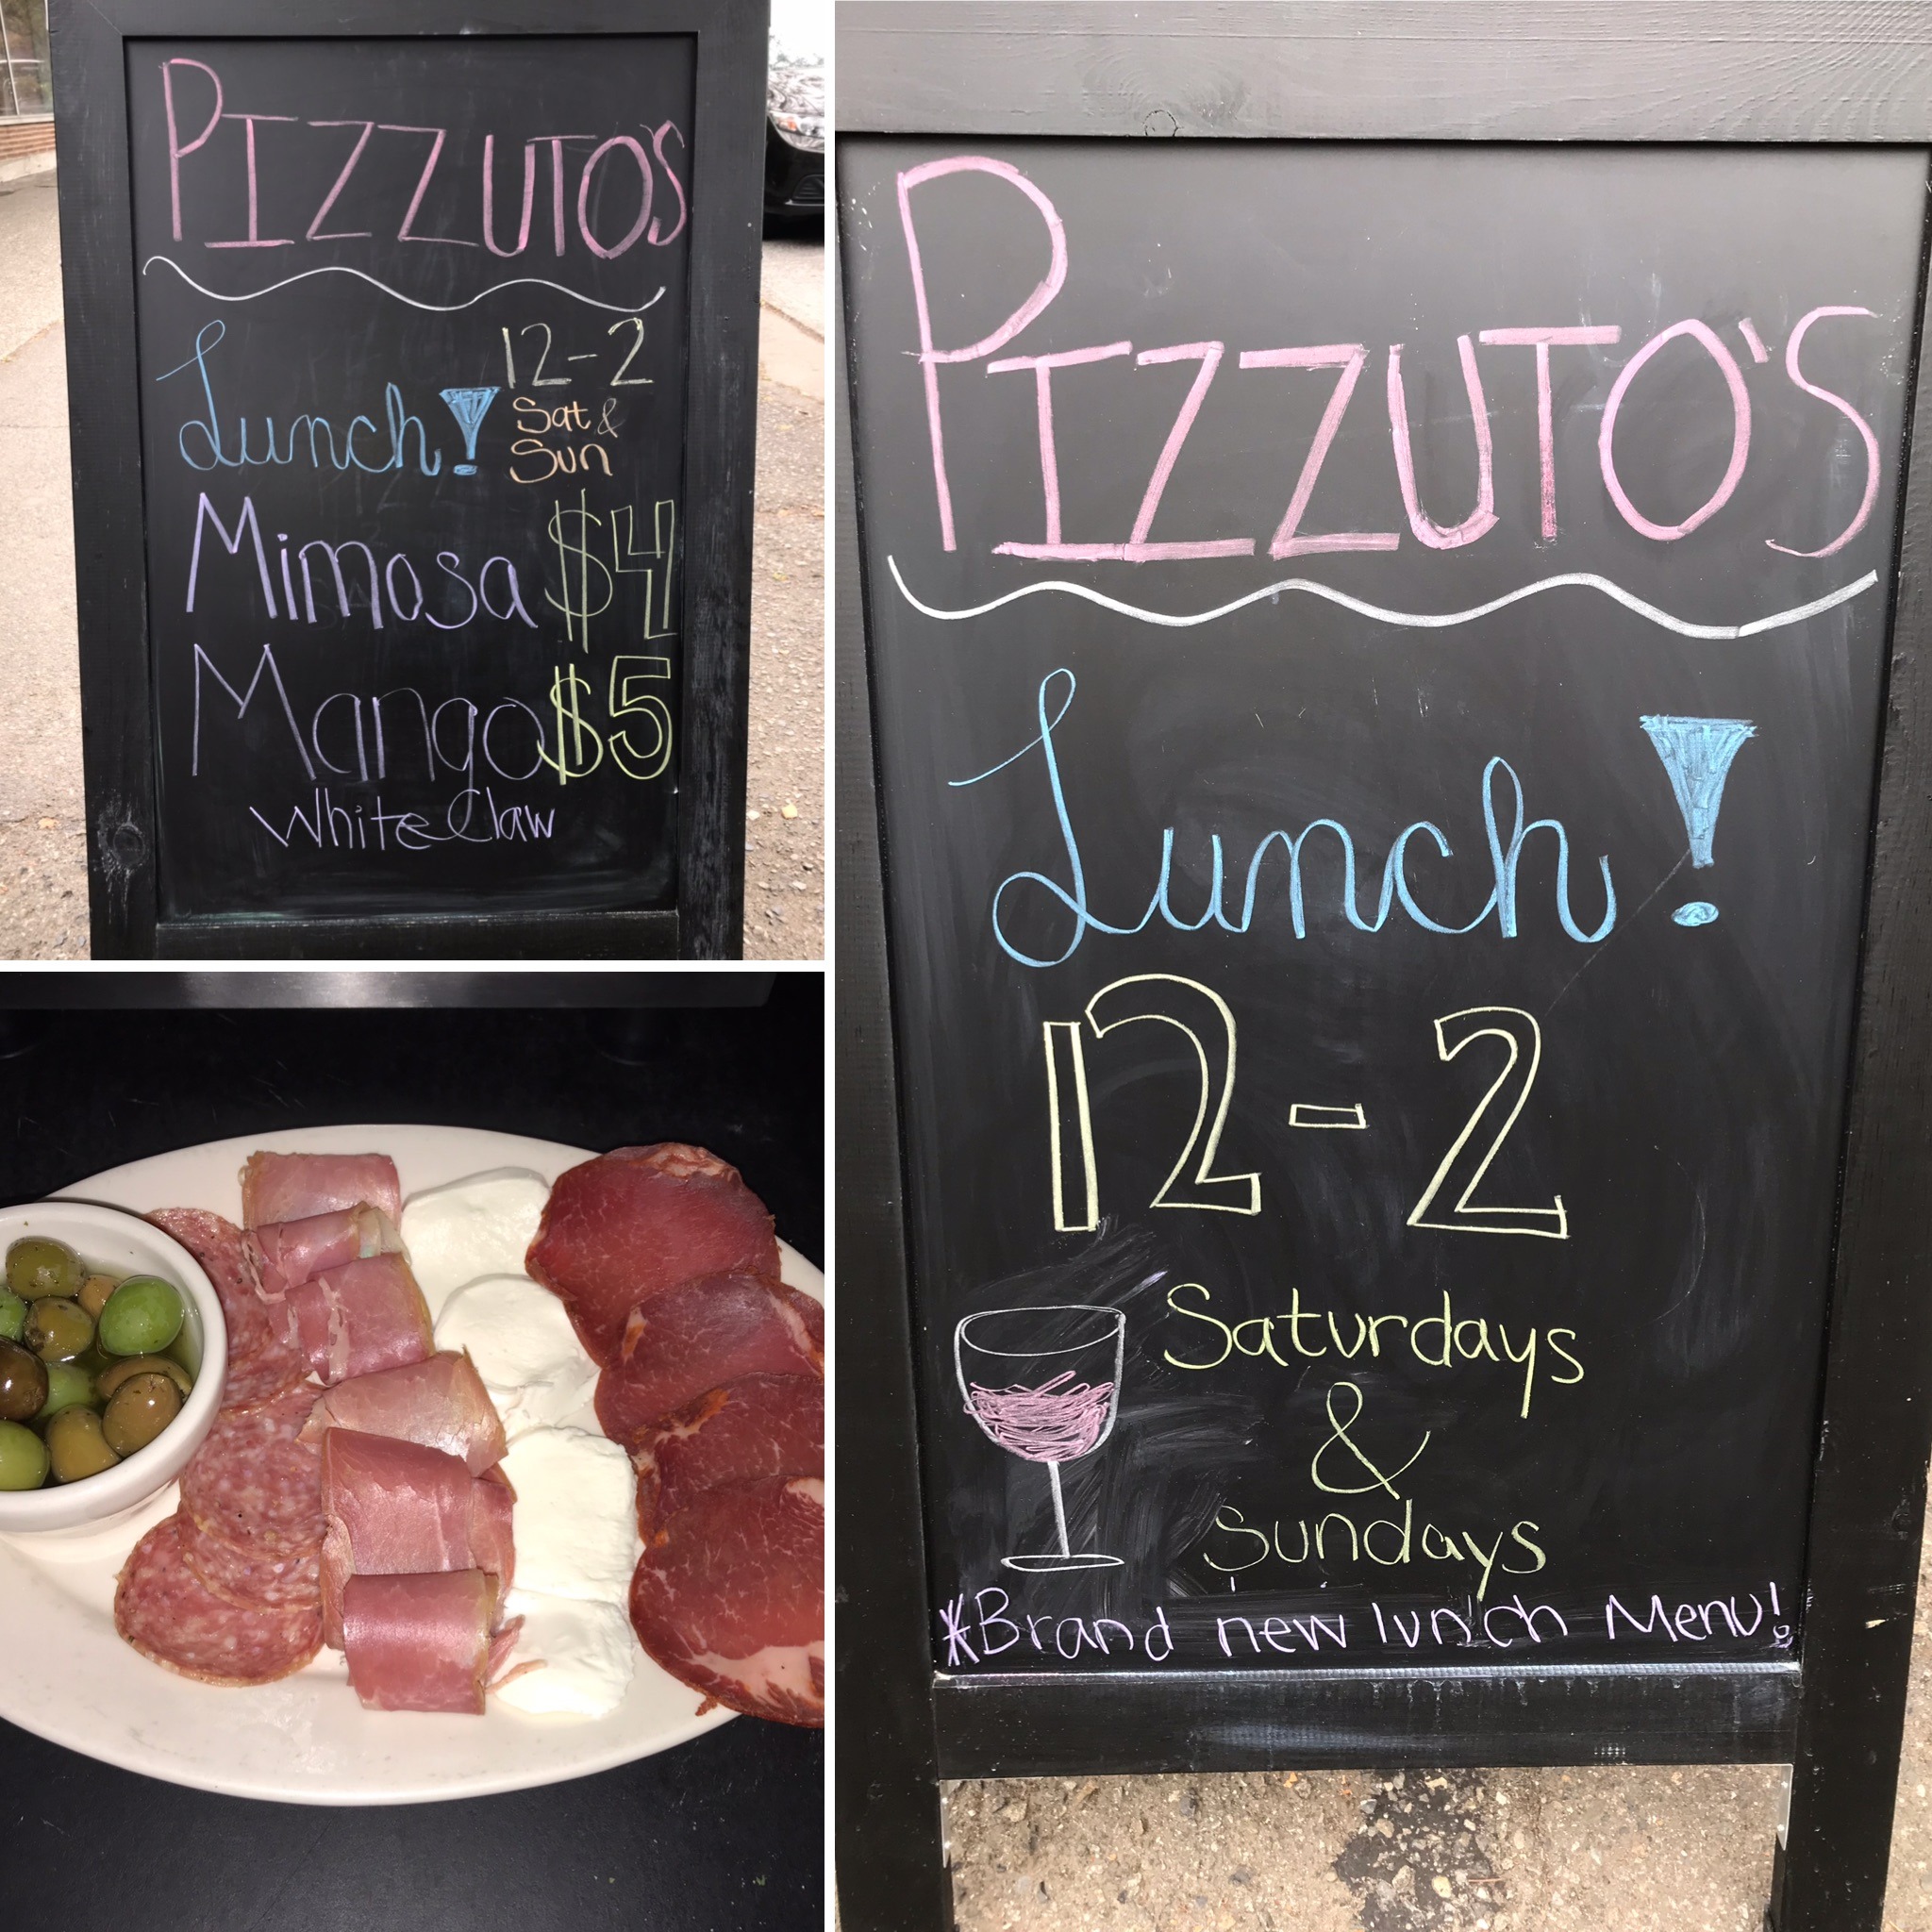 PIZZUTO'S
Lunch! 12-2
Sat &
Sun
Mimosa $4
Mango $5
White Claw
PIZZUTO'S
Lunch!
12-2
Saturdays
&
Sundays
*Brand new lunch Menu!